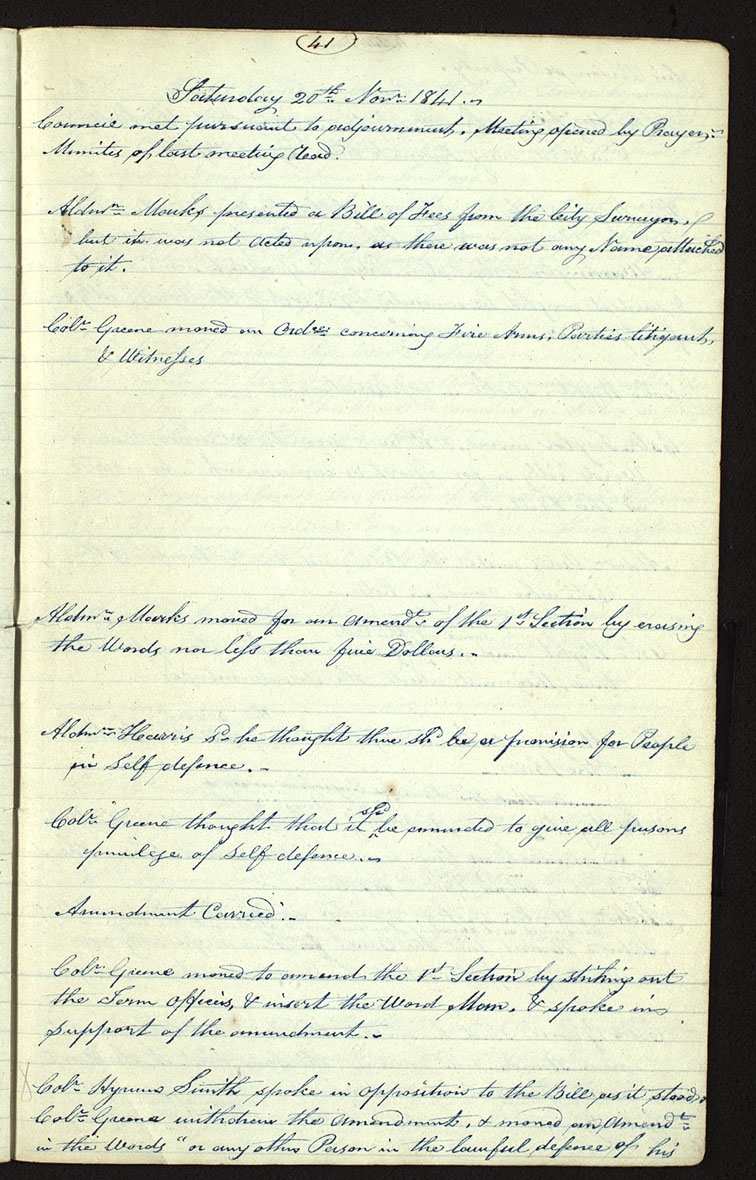 41
Saturday 20th Novr 1841.~
Council met pursuant to adjournment, Meeting opened by Prayer,~
Minites of last meeting Read.
Aldmn Marks presented a Bill of Fees from the City Surveyor,
but it was not acted upon, as there was not any Name attached
to it.
Colr Greene moved an Ordce concerning Fire Arms, Parties litigant,
& Witnesses
Aldmn Marks moved for an amendt of the 1st Section by erasing
the Words nor less than five Dollars.~
Aldmn Harris sd he thought there shd be a provision for People
in Self defence.~
Colr Greene thought that it shd be amended to give all persons
privilege of Self defence.~
Amendment Carried.~
Colr Greene moved to amend the 1st Section by striking out
the Term officers, & insert the Word Man, & spoke in
support of the amendment.~
Colr Hyrum Smith spoke in opposition to the Bill as it stood,
Colr Greene withdrew the amendment, & moved an Amendt
in the Words "or any other Person in the lawful defence of his